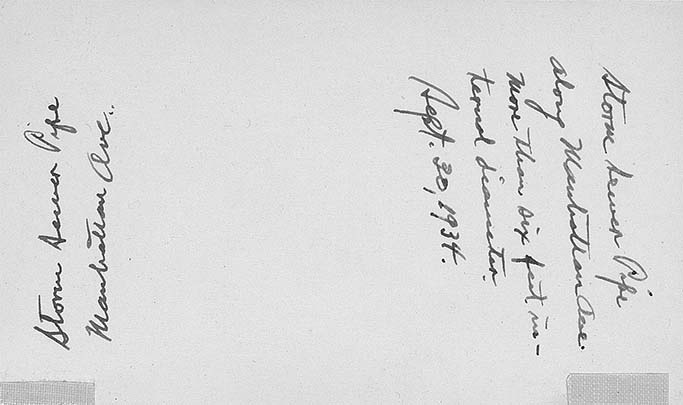 Storm Sewer Pipe
Manhattan Ave..
Storm Sewer Pipe
along Manhattan Ave.
more than six feet in-
ternal diameter.
Sept. 30, 1934.